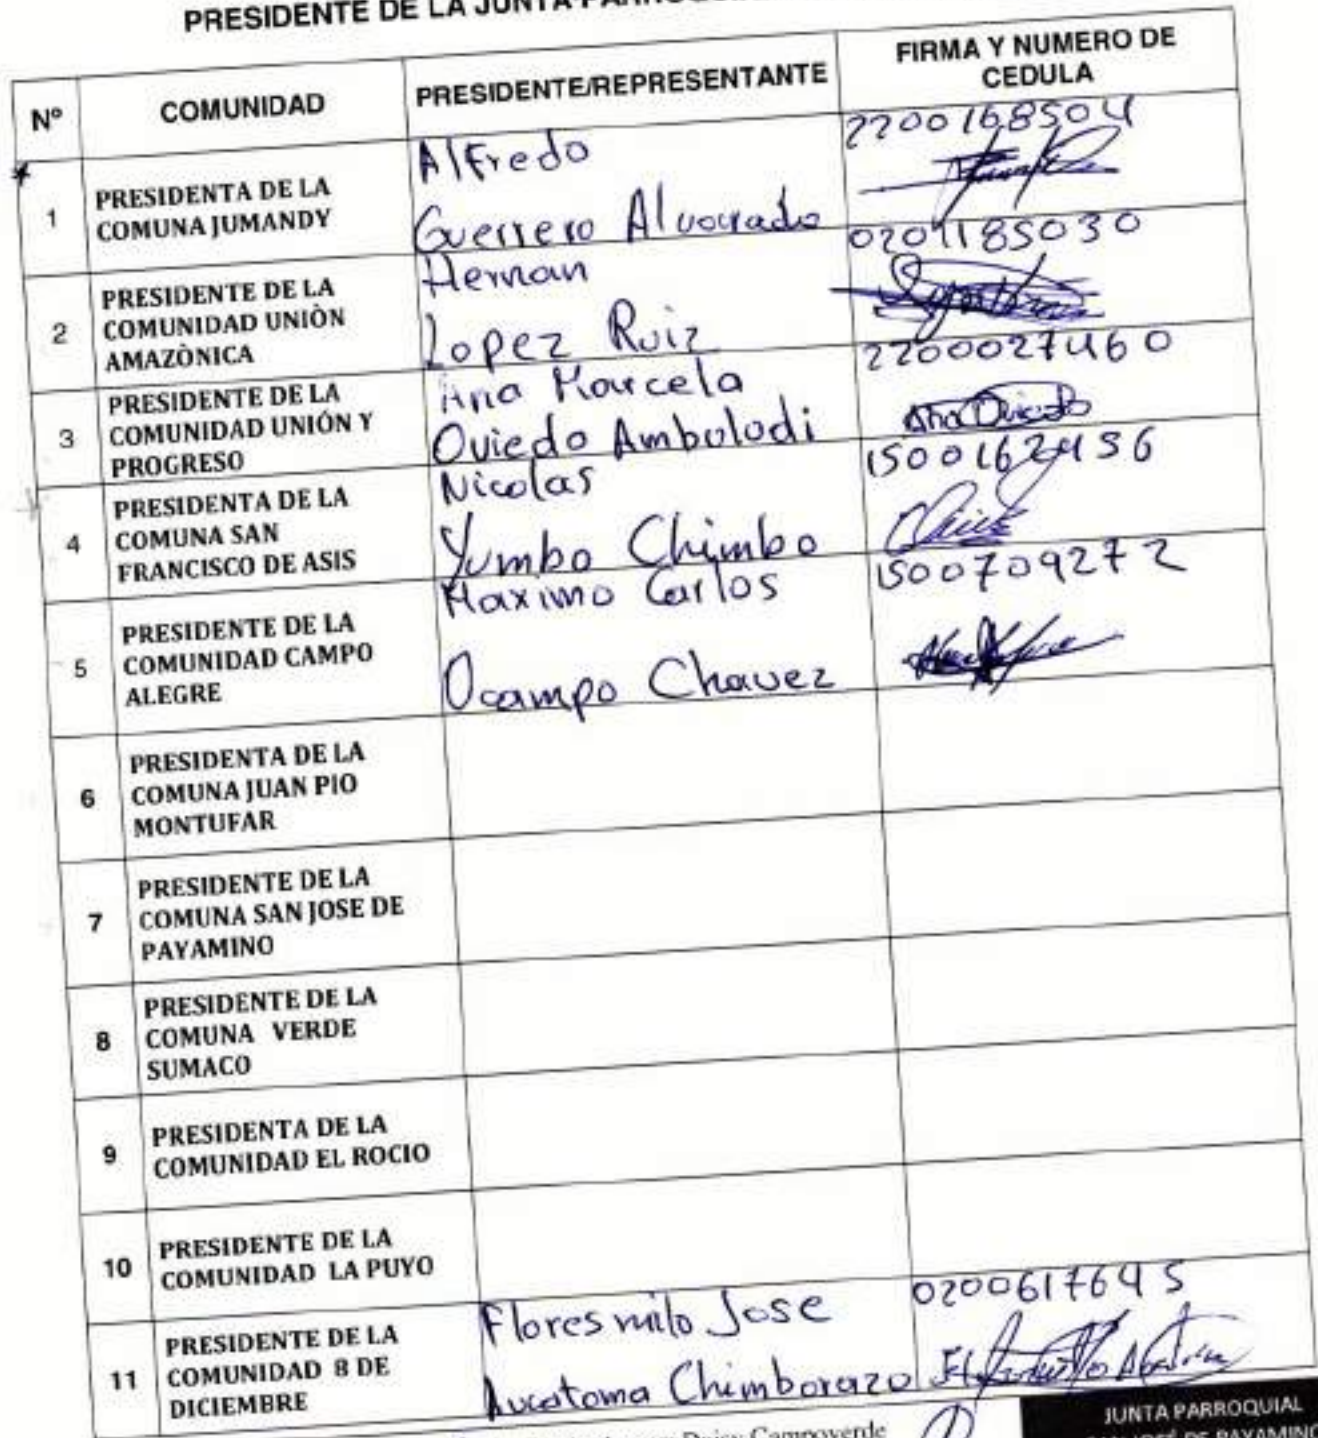 PRESIDENTE DE LA JUNTA
Nº
COMUNIDAD
PRESIDENTE/REPRESENTANTE
FIRMA Y NUMERO DE
CEDULA
1
PRESIDENTA DE LA
COMUNA JUMANDY
Alfredo
Guerrero Alvarado
2200168504
2
PRESIDENTE DE LA
COMUNIDAD UNIÒN
AMAZÒNICA
Hernan
Lopez Ruiz
0201185030
3
PRESIDENTE DE LA
COMUNIDAD UNIÓN Y
PROGRESO
Ana Marcela
Oviedo Ambolodi
2200027460
Ana Oviedo
4
PRESIDENTA DE LA
COMUNA SAN
FRANCISCO DE ASIS
Nicolas
Yumbo Chimbo
5
PRESIDENTE DE LA
COMUNIDAD CAMPO
ALEGRE
Maximo Carlos
Ocampo Chavez
1500709272
6
PRESIDENTA DE LA
COMUNA JUAN PIO
MONTUFAR
7
PRESIDENTE DE LA
COMUNA SAN JOSE DE
PAYAMINO
8
PRESIDENTE DE LA
COMUNA VERDE
SUMACO
9
PRESIDENTA DE LA
COMUNIDAD EL ROCIO
10
PRESIDENTE DE LA
COMUNIDAD LA PUYO
11
PRESIDENTE DE LA
COMUNIDAD 8 DE
DICIEMBRE
Floresmilo Jose
Aucatoma Chimborazo
0200617645
Daisy Campoverde
JUNTA PARROQUIAL
JOSÉ DE PAYAMINO